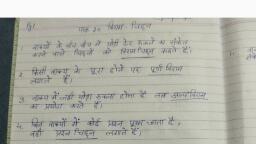 पाठ 20 विराम चिह्न
1. वाक्यों के बीच बीच में थोड़ी देर रुकने का संकेत
करने वाले चिह्नों को विराम चिह्न कहते हैं।
2. किसी वाक्य के पूरा होने पर पूर्ण विराम
लगाते हैं।
3. वाक्य में जहाँ थोड़ा रुकना होता है तब अल्पविराम
का प्रयोग करते हैं।
4. जिन वाक्यों में कोई प्रश्न पूछा जाता है,
वहाँ प्रश्न चिह्न लगाते हैं।
1.